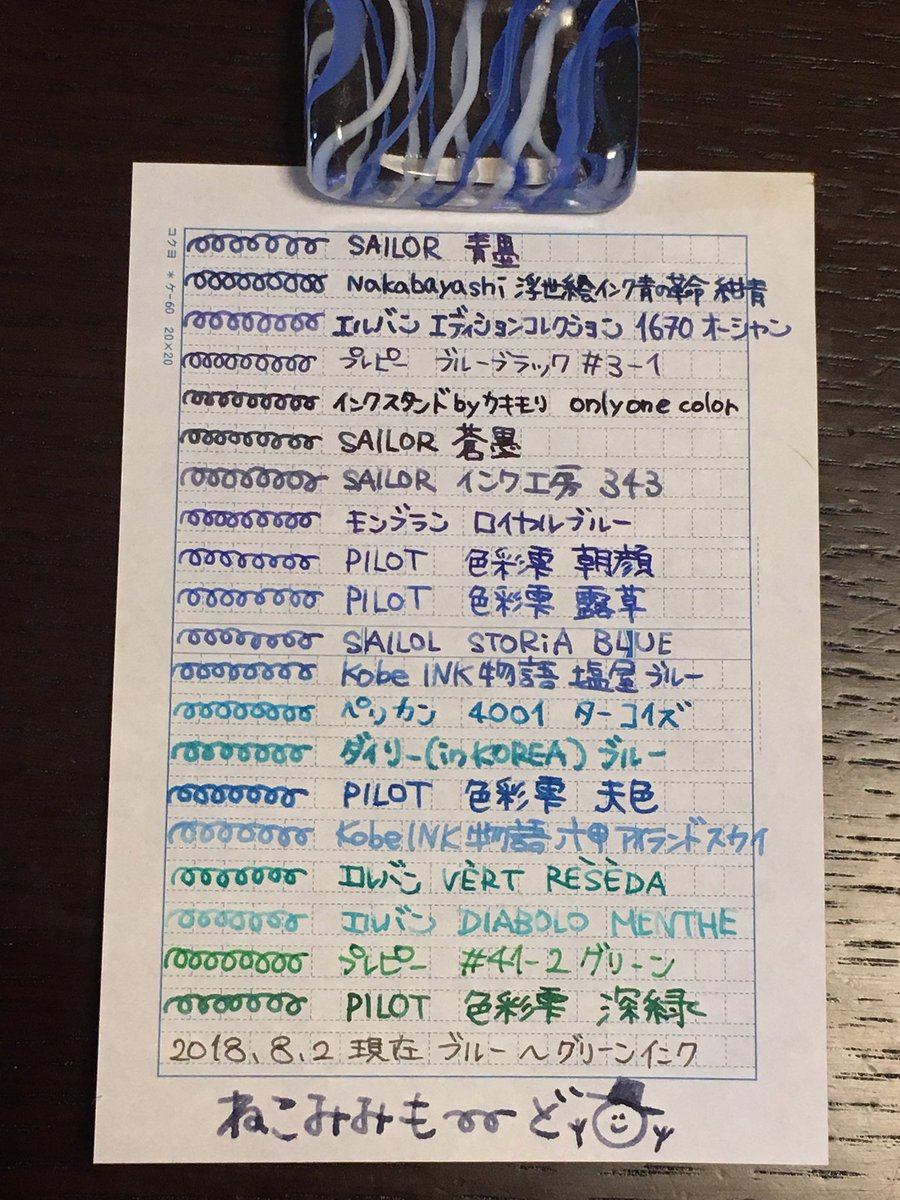 コクヨ * ケ-60 20×20
SAILOR 青墨
Nakabayashi 浮世絵インク青の革命 紺青
エルバン エディションコレクション 1670 オーシャン
プレピー ブルーブラック #3-1
インクスタンドbyカキモリ only one color
SAILOR 蒼墨
SAILOR インク工房 343
モンブラン ロイヤルブルー
PILOT 色彩雫 朝顔
PILOT 色彩雫 露草
SAILOL STORiA BLUE
Kobe INK物語 塩屋ブルー
ペリカン 4001 ターコイズ
ダイリー(in KOREA) ブルー
PILOT 色彩雫 天色
Kobe INK物語 六甲アイランドスウイ
エルバン VÈRT RÈSÈDA
エルバン DIABOLO MENTHE
プレピー #41-2 グリーン
PILOT 色彩雫 深緑
2018.8.2 現在 ブルー〜グリーンインク
ねこみみも〜ど